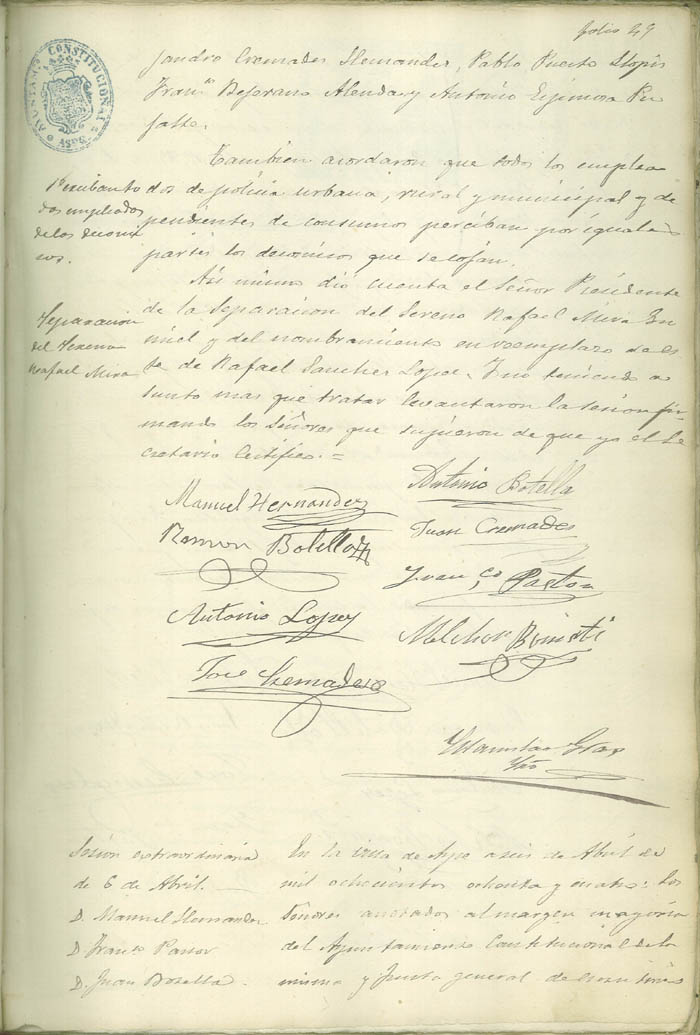 folio 29
AYUNTAM. CONSTITUCIONAL
ASPE
jandro Cremades Hernandez, Pablo Puerto Llopis
Fran.co Bejerano Alenda y Antonio Espinosa Pu
jalte.
Tambien acordaron que todos los emplea
Perciban to
dos empleados
de los decomi
sos.
dos de policia urbana, rural y municipal y de
pendientes de consumos perciban por iguales
partes los decomisos que se cojan.
Asi mismo dio cuenta el Señor Presidente
Separacion
del Sereno
Rafael Mira
de la separacion del Sereno Rafael Mira
y del nombramiento en reemplazo de es
te de Rafael Sanchez Lopez. Y no teniendo a
sunto mas que tratar levantaron la sesion fir
mando los Señores que supieron de que yo el Se
cretario Certifico.=
Manuel Hernandez
Antonio Botella
Ramon Botella
Juan Cremades
Fran.co Pastor
Antonio Lopez
Melchor
Jose Cremades
Srio
Sesion extraordinaria
de 6 de Abril.
D. Manuel Hernandez
D. Fran.co Pastor
D. Juan Botella
En la villa de Aspe a seis de Abril de
mil ochocientos ochenta y cuatro: los
Señores anotados al margen mayoria
del Ayuntamiento Constitucional de la
misma y Junta general de asociados